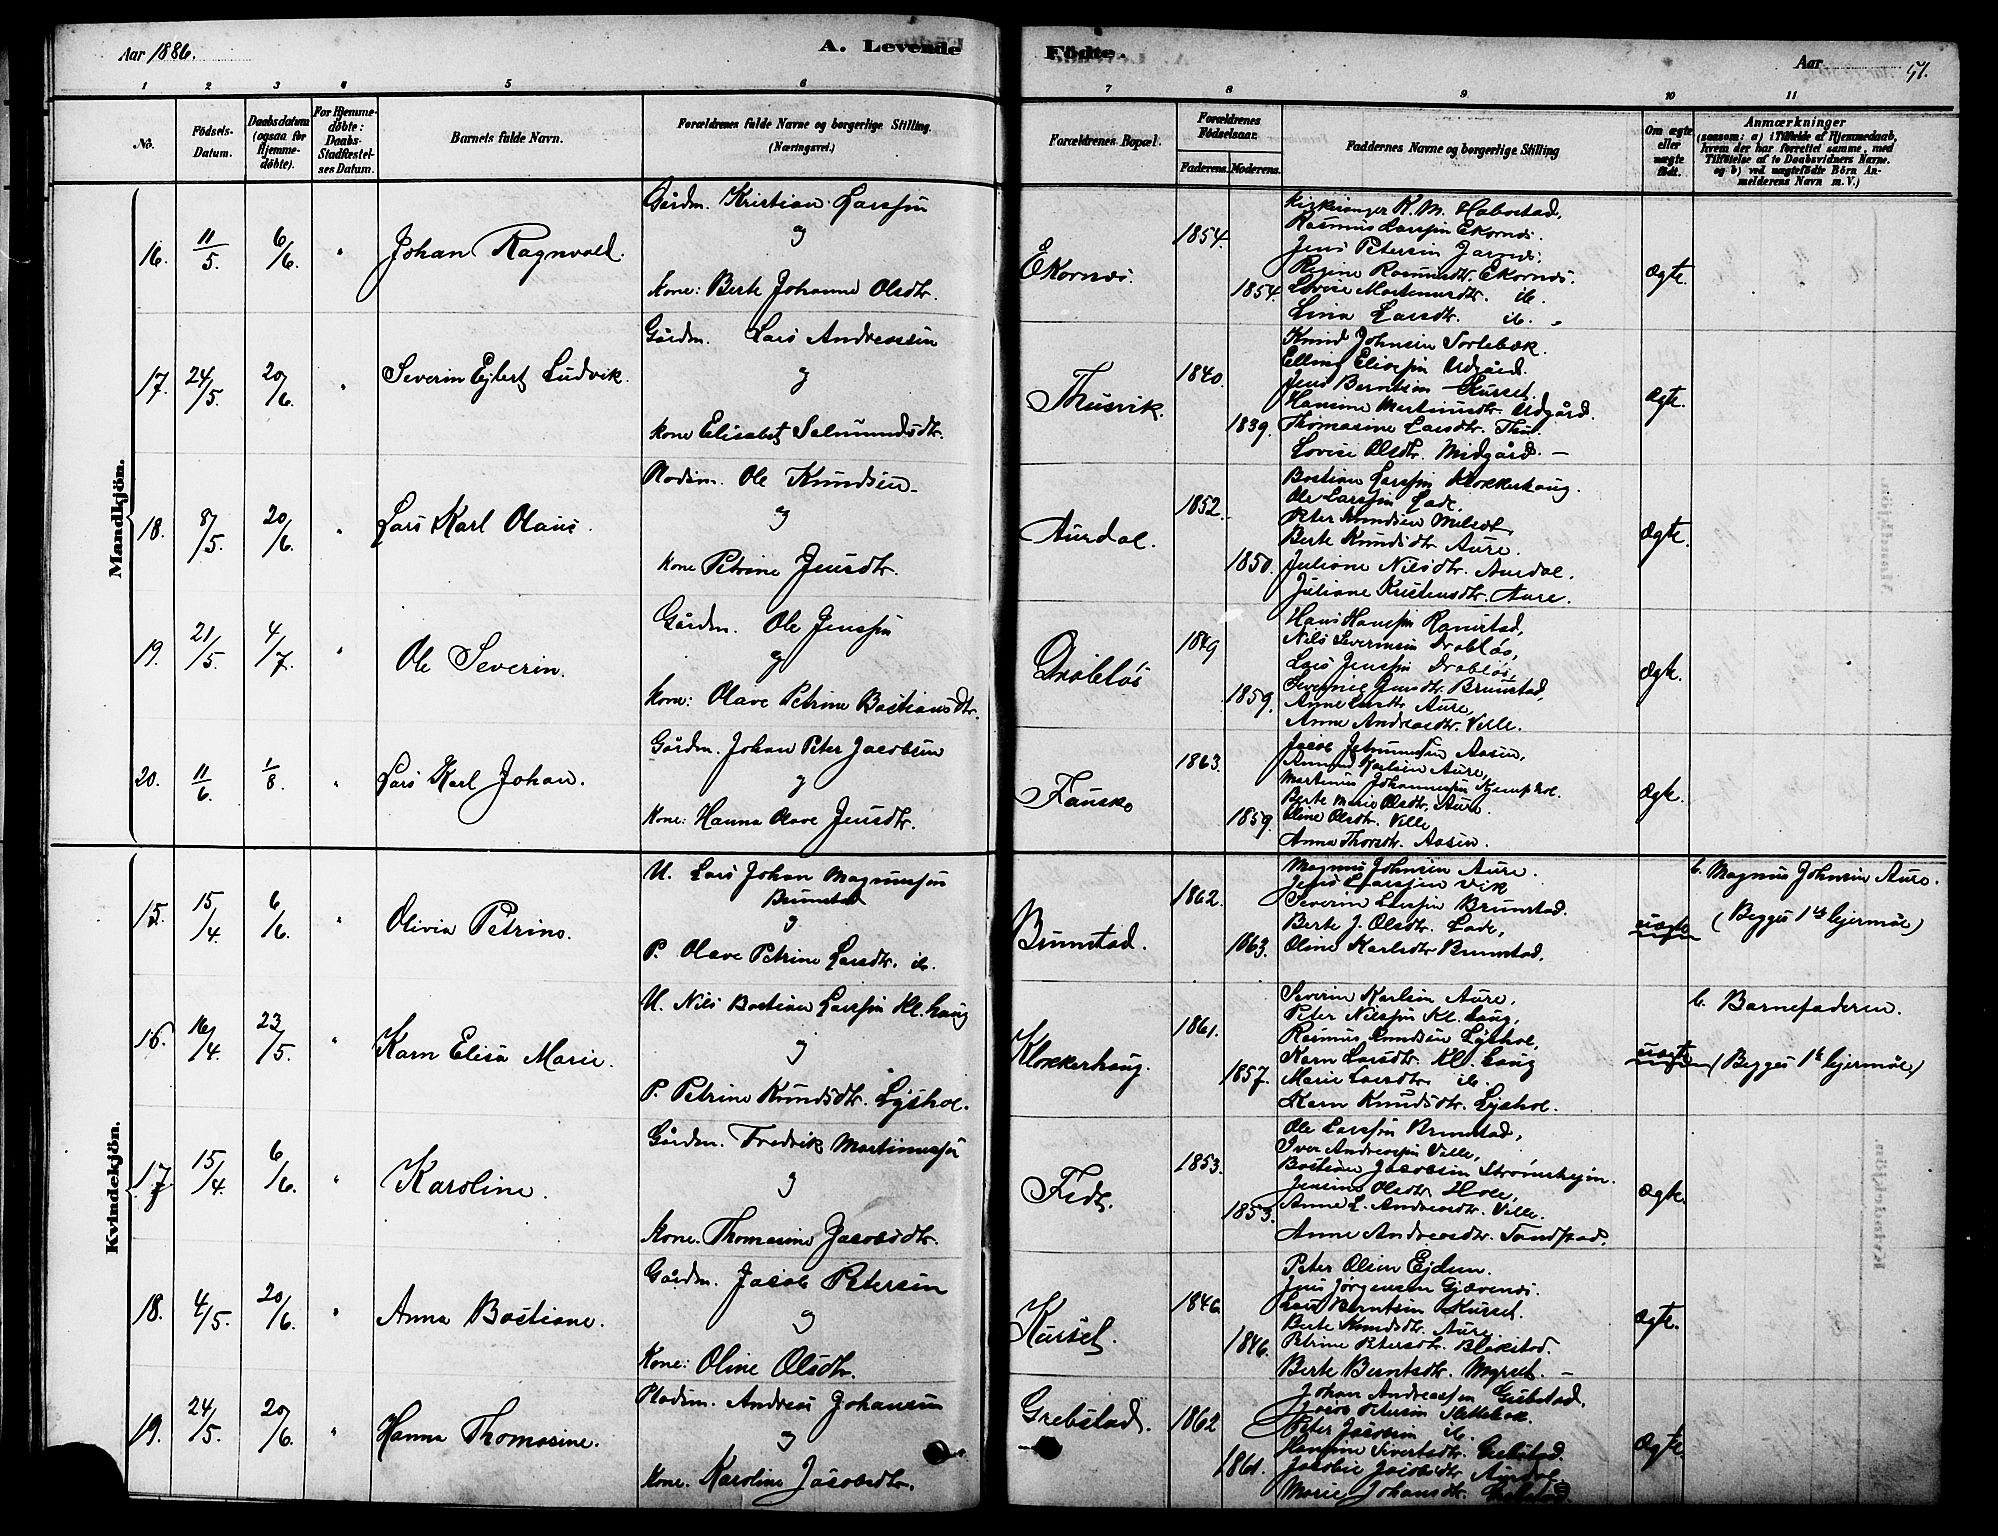 Aar 1886.
A. Levende
Födte.
Aar
51.
1 2 3 4 5 6 7 8 9 10 11
No.
Födsels-
Datum.
Daabsdatum
(ogsaa for
Hjemme-
døbte).
For Hjemme-
døbte:
Daabs-
Stadfæstel-
ses Datum.
Barnets fulde Navn.
Forældrenes fulde Navne og borgerlige Stilling.
(Næringsvei.)
Forældrenes Bopæl.
Forældrenes
Fødselsaar.
Faderens. Moderens.
Faddernes Navne og borgerlige Stilling
Om ægte
eller
uægte
født.
Anmærkninger
(saasom: a) i Tilfælde af Hjemmedaab,
hvem der har forrettet samme, med
Tilføielse af to Daabsvidners Navne.
og b) ved uægtefødte Børn An-
melderens Navn m. V.)
Mandkjön.
16. 11/5. 6/6. " Johan Ragnvald.
Gårdm. Kristian Larssen
og
Kone: Berte Johanne Olsdtr.
Ekornes.
1854.
1854.
Kirkesanger K. M. Habostad,
Rasmus Larssen Ekornes.
Jens Petersen Jarnes.
Regine Rasmusdtr. Ekornes.
Lovise Martinusdtr. ib.
Lina Larsdtr. ib.
Ægte.
17. 24/5. 20/6. " Severin Ejlert Ludvik.
Gårdm. Lars Andreassen
og
Kone Elisabet Salmundsdtr.
Thusvik.
1840.
1839.
Knud Johnsen Torlebak.
Elling Eliassen Udgård.
Jens Berntsen Kurset.
Hansine Martinusdtr. Udgård.
Thomasine Larsdtr. Thu.
Lovise Olsdtr. Midgård.
Ægte.
18. 8/5. 20/6. " Lars Karl Olaus.
Pladsm. Ole Knudsen
og
Kone Petrine Jensdtr.
Aurdal.
1852.
1850.
Bastian Larssen Klokkerhaug.
Ole Larssen Lade,
Peter Knudsen Melsæt,
Berte Knudsdtr. Aure.
Juliane Nilsdtr. Aurdal,
Juliane Kristensdtr. Aure.
Ægte.
19. 21/5. 4/7. " Ole Severin.
Gårdm. Ole Jenssen
og
Kone: Olave Petrine Bastiansdtr.
Drabløs
1849
1859.
Hans Hanssen Ramstad,
Nils Severinsen Drabløs,
Lars Jenssen Drabløs,
Severine Jensdtr. Brunstad,
Anne Larsdtr. Aure,
Anne Andreasdtr. Velle.
Ægte.
20. 11/6. 1/8. " Lars Karl Johan.
Gårdm. Johan Peter Jacobsen
og
Kone: Hanna Olave Jensdtr.
Fausko
1863.
1859.
Jacob Aasen,
Karlsen Aure,
Martinus Johannessen
Berte Marie Olsdtr. Aure
Oline Olsdtr. Velle
Anna Thorsdtr. Aasen.
Ægte.
Kvindekjön.
15. 15/4. 6/6. " Olivia Petrine.
U. Lars Johan Magnussen
Brunstad
og
P. Olave Petrine Larsdtr. ib.
Brunstad.
1862.
1863.
Magnus Johnsen Aure.
Jens Larssen Vik
Severin Larssen Brunstad.
Berte J. Olsdtr. Lade,
Oline Karlsdtr. Brunstad.
uægte
b. Magnus Johnsen Aure.
(Begges 1ste lejermål)
16. 16/4. 23/5. " Karn Elisa Marie.
U. Nils Bastian Larssen Kl. haug
og
P. Petrine Knudsdtr. Lyshol.
Klokkerhaug.
1861.
1857.
Severin Karlsen Aure,
Peter Nilssen Kl. haug,
Rasmus Knudsen Lyshol,
Karn Larsdtr. Kl. haug
Marie Larsdtr. ib.
Karn Knudsdtr. Lyshol.
uægte
b. Barnefaderen.
(Begges 1ste lejermål)
17. 15/4. 6/6. " Karoline.
Gårdm. Fredrik Martinussen
og
Kone. Thomasine Jacobsdtr.
Fidt.
1853.
1853.
Ole Larssen Brunstad,
Iver Andreassen Velle,
Bastian Jacobsen Strømshejm.
Jensine Olsdtr. Hole,
Anne L. Andreasdtr. Velle.
Anne Andreasdtr. Tandstad.
Ægte.
18. 4/5. 20/6. " Anna Bastiane.
Gårdm. Jacob Petersen
og
Kone: Oline Olsdtr.
Kurset.
1846.
1846.
Peter Olsen Ejdem.
Jens Jørgensen Gjævenes.
Lars Berntsen Kurset.
Berte Knudsdtr. Aure.
Petrine Petersdtr. Blakstad.
Berte Berntsdtr. Myrset.
Ægte.
19. 24/5. 20/6. " Hanna Thomasine.
Pladsm. Andreas Johansen
og
Kone. Karoline Jacobsdtr.
Grebstad.
1862
1861.
Johan Andreassen Grebstad.
Jacob Petersen Slettebak.
Peter Jacobsen ib.
Hansine Sivertsdtr. Grebstad.
Jacobie Jacobsdtr. Aurdal
Marie Johansdtr. Grebstad.
Ægte.